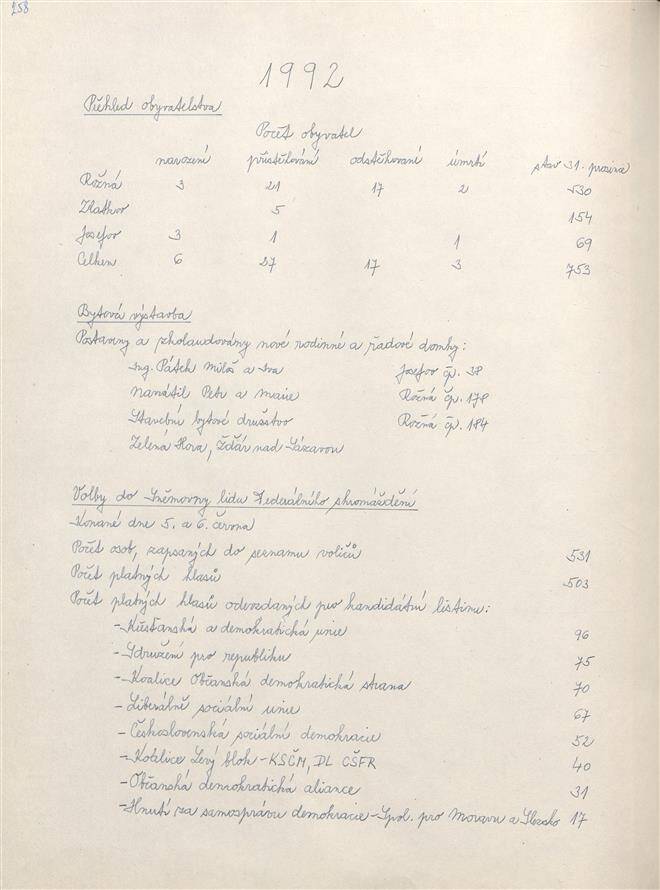 258
1992
Přehled obyvatelstva
Počet obyvatel
narození přistěhování odstěhovaní úmrtí stav 31. prosince
Rožná 3 21 17 2 530
Zlatkov 5 154
Josefov 3 1 1 69
Celkem 6 27 17 3 753
Bytová výstavba
Postaveny a zkolaudovány nové rodinné a řadové domky:
Ing. Pátek Miloš a Iva Josefov čp. 38
Nanátil Petr a Marie Rožná čp. 178
Stavební bytové družstvo Rožná čp. 184
Zelená Hora, Žďár nad Sázavou
Volby do Sněmovny lidu Federálního shromáždění
Konané dne 5. a 6. června
Počet osob, zapsaných do seznamu voličů 531
Počet platných hlasů 503
Počet platných hlasů odevzdaných pro kandidátní listinu:
- Křesťanská a demokratická unie 96
- Sdružení pro republiku 75
- Koalice Občanská demokratická strana 70
- Liberálně sociální unie 67
- Československá sociální demokracie 52
- Koalice Levý blok - KSČM, DL ČSFR 40
- Občanská demokratická aliance 31
- Hnutí za samosprávu demokracie - Spol. pro Moravu a Slezsko 17